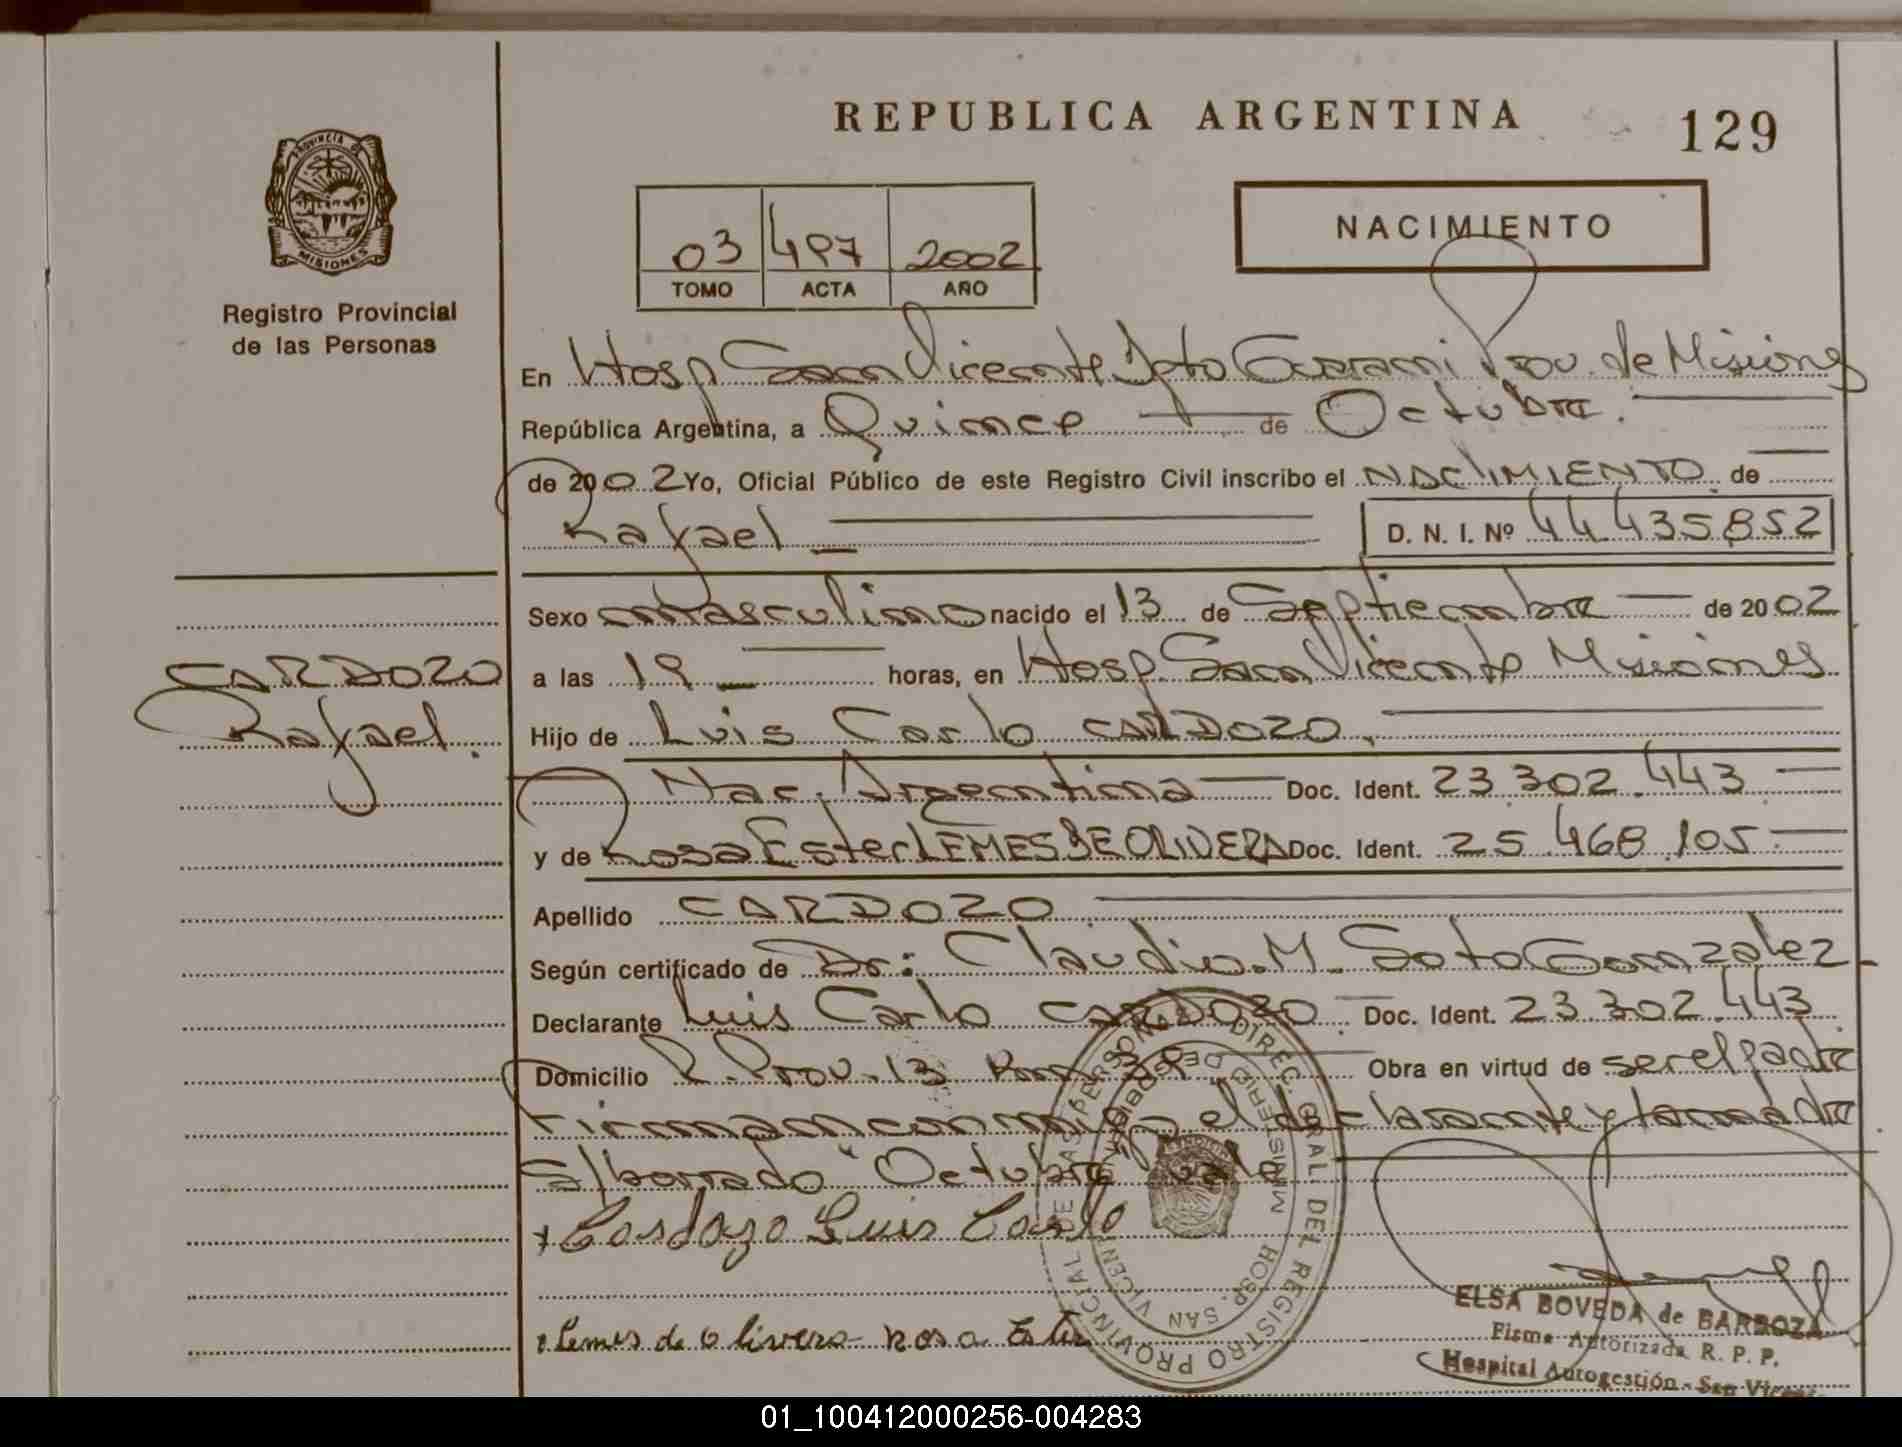 REPUBLICA ARGENTINA
129
PROVINCIA DE
MISIONES
Registro Provincial
de las Personas
03 497 2002
TOMO ACTA AÑO
NACIMIENTO
En Hosp San Vicente Dpto Guarani Prov. de Misiones
República Argentina, a Quince de Octubre.
de 2002 Yo, Oficial Público de este Registro Civil inscribo el NACIMIENTO de
Rafael
D. N. I. Nº 44.435.852
Sexo masculino nacido el 13 de Septiembre de 2002
CARDOZO
Rafael.
a las 19 horas, en Hosp. San Vicente Misiones
Hijo de Luis Carlo CARDOZO.
Nac. Argentina Doc. Ident. 23.302.443
y de Rosa Ester LEMES DE OLIVERA Doc. Ident. 25.468.105
Apellido CARDOZO
Según certificado de Dr: Claudio M. Soto Gonzalez
Declarante Luis Carlo CARDOZO Doc. Ident. 23.302.443
Domicilio R. Prov. 13 Km 39 Obra en virtud de ser el padre
Firman conmigo el declarante y la madre
S/borrado "Octubre" vale
x Cardozo Luis Carlo
x Lemes de olivera rosa Ester
DIREC. GRAL DEL REGISTRO PROVINCIAL DE LAS PERSONAS
HOSP. SAN VICENTE
ELSA BOVEDA de BARBOZA
Firma Autorizada R. P. P.
Hospital Autogestión - San Vicente
01_100412000256-004283